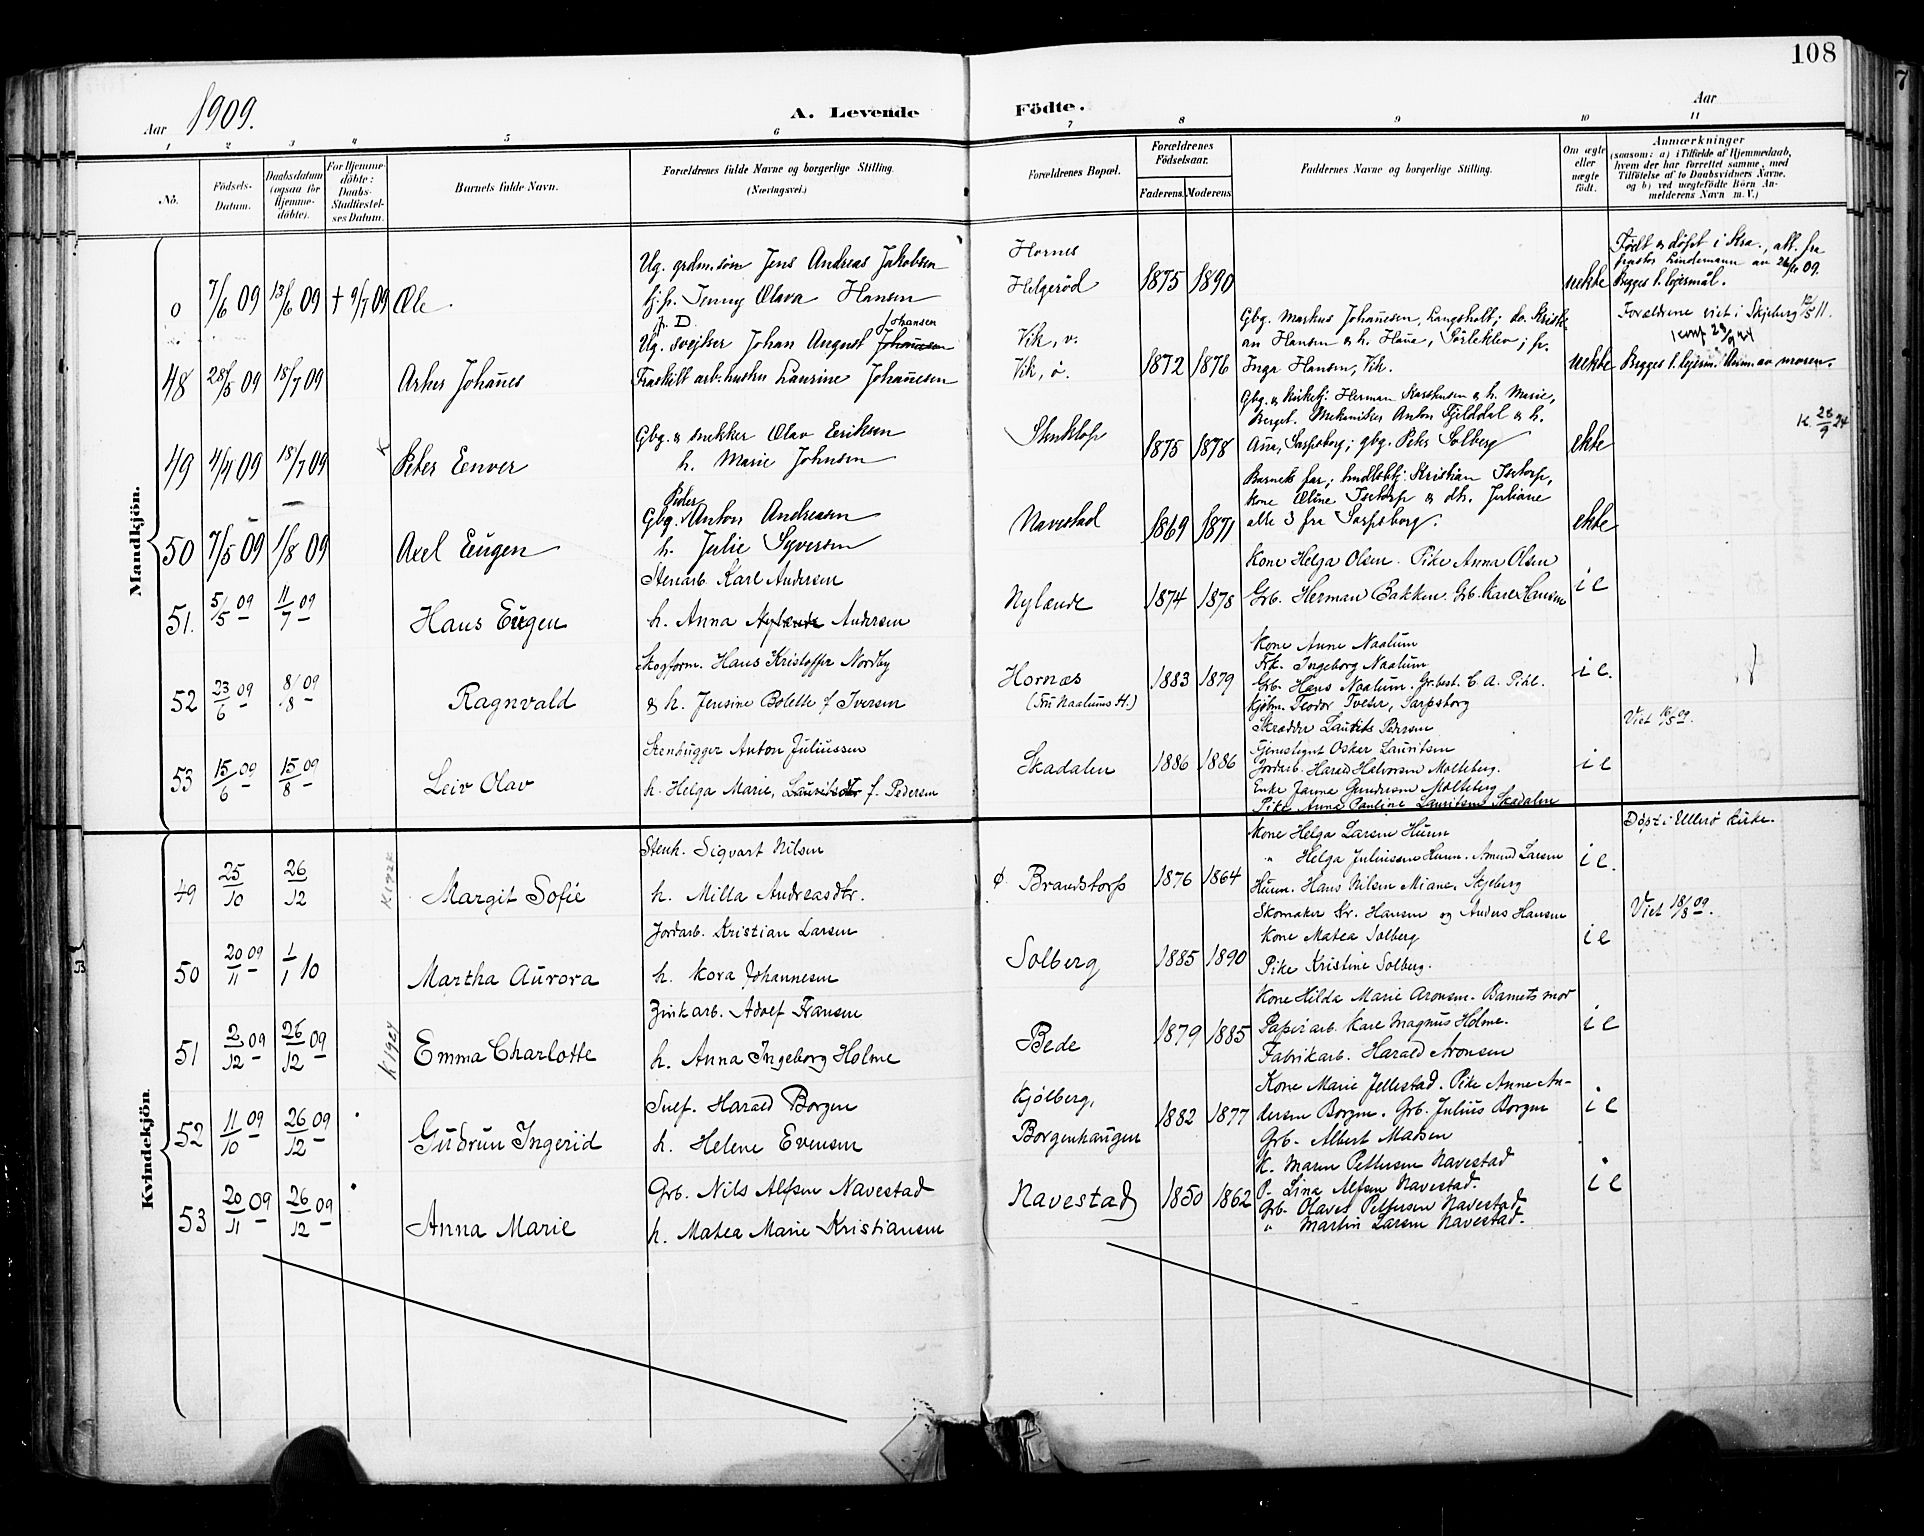 108
7
Aar 1909.
A. Levende Födte.
Aar
1 2 3 4 5 6 7 8 9 10 11
No.
Födsels-Datum.
Daabsdatum (ogsaa for Hjemme-döbte).
For Hjemme-döbte: Daabs-Stadfæstel-ses Datum.
Barnets fulde Navn.
Forældrenes fulde Navne og borgerlige Stilling. (Næringsvei.)
Forældrenes Bopæl.
Forældrenes Födselsaar.
Faderens. Moderens.
Faddernes Navne og borgerlige Stilling.
Om ægte eller uægte födt.
Anmærkninger (saasom: a) i Tilfælde af Hjemmedaab, hvem der har forrettet samme, med Tilföielse af to Daabsvidners Navne, og b) ved uægtefödte Börn An-melderens Navn m. V.)
Mandkjön.
0 7/6 09 13/6 09 † 9/7 09 Ole.
Ug. grdm.søn Jens Andreas Jakobsen
Jenny Olava Hansen
Hornes
Helgerød
1875 1890
uekte
Født & døpt i Kra., att. fra
pastor Lindemann av 26/10 09.
Begges 1. leiermål.
Foreldrene viet i Skjeberg 12/5 11.
48 28/5 09 18/7 09 Asker Johanes
Ug. svejtser Johan August Johansen
Fraskilt arb.hustru Laurine Johanesen
Vik, v.
Vik, ø.
1872 1876
Gbg. Markus Johanesen, Langsholt; do. Kristi-
an Hansen & h. Hana, Sørleklev; p.
Inga Hansen, Vik.
uekte
konf 28/9 24
Begges 1. leierm. Anm. av moren.
49 4/4 09 18/7 09 K Peter Enver
Gbg. & snekker Olav Eriksen
h. Marie Johnsen
Stenklop
1875 1878
Gbg. & kirketj. Herman Karsthusen & h. Marie,
Berget. Mekaniker Anton Fjelddal & h.
Ana, Sarpsborg; gbg. Peter Solberg
ekte
K. 28/9 24
50 7/5 09 1/8 09 Axel Eugen
Gbg. Peder Anton Andreasen
h. Julie Syversen
Navestad
1869 1871
Barnets far; hndlsbtj. Kristian Isetorp,
kone Oline Isetorp & dtr. Juliane
alle 3 fra Sarpsborg.
ekte
51. 5/5 09 11/7 09 Hans Eugen
Stenarb. Karl Andersen
h. Anna Nylande Andersen
Nylænde
1874 1878
Kone Helga Olsen. Pike Anna Olsen
Grb. Herman Bakken. Grb. Karel Hansen
i e
52 23/6 09 8/8 09 Ragnvald
Skogform. Hans Kristoffer Nordby
& h. Jensine Bolette f Iversen
Hornæs
(Fru Naalums H.)
1883 1879
Kone Anne Naalum
Frk. Ingeborg Naalum
Grb. Hans Naalum. Gr.best. C. A. Pihl.
Kjøbm. Teodor Tveter, Sarpsborg
i e.
53 15/6 09 15/8 09 Leiv Olav
Stenhugger Anton Juliussen
h. Helga Marie, Lauritsdtr f. Pedersen
Skadalen
1886 1886
Skrædder Laurits Pedersen
Tjenestegut Oskar Lauritsen
Jordarb. Harald Halvorsen Molteberg.
Enke Janna Gundersen Molteberg
Pike Anna Pauline Lauritsen Skadalen
i e
Viet 16/5 09.
Kvindekjön.
49 25/10 26/12 K 1924 Margit Sofie
Stenh. Sigvart Nilsen
h. Milla Andreasdtr.
ø Brandstorp
1876 1864
Kone Helga Larsen Hunn
" Helga Juliussen Hunn. Amund Larsen
Hunn. Hans Nilsen Miane, Skjeberg
i e.
Døpt i Ullerø kirke.
50 20/11 09 1/1 10 Martha Aurora
Jordarb. Kristian Larsen
h. Kora Johannesen
Solberg
1885 1890
Skomaker Kr. Hansen og Anders Hansen
Kone Matea Solberg
Pike Kristine Solberg.
i e
Viet 18/8 09.
51 2/12 09 26/12 09 K 1924 Emma Charlotte
Zinkarb. Adolf Fransen
h. Anna Ingeborg Holme
Bede
1879 1885
Kone Hilda Marie Aronsen. Barnets mor
Papirarb. Karl Magnus Holme.
Fabrikarb. Harald Aronsen
i e
52 11/10 09 26/12 09 Gudrun Ingerid
Harald Borgen
h. Helene Evensen
Kjølberg,
Borgenhaugen
1882 1877
Kone Marie Jellestad. Pike Anne An-
dersen Borgen. Grb. Julius Borgen
Grb. Albert Madsen
i e
53 20/11 09 26/12 09 Anna Marie
Grb. Nils Alfsen Navestad
h. Matea Marie Kristiansen
Navestad
1850 1862
K. Maren Pettersen Navestad
P. Lina Alfsen Navestad.
Grb. Olaves Pettersen Navestad
" Martin Larsen Navestad.
i e